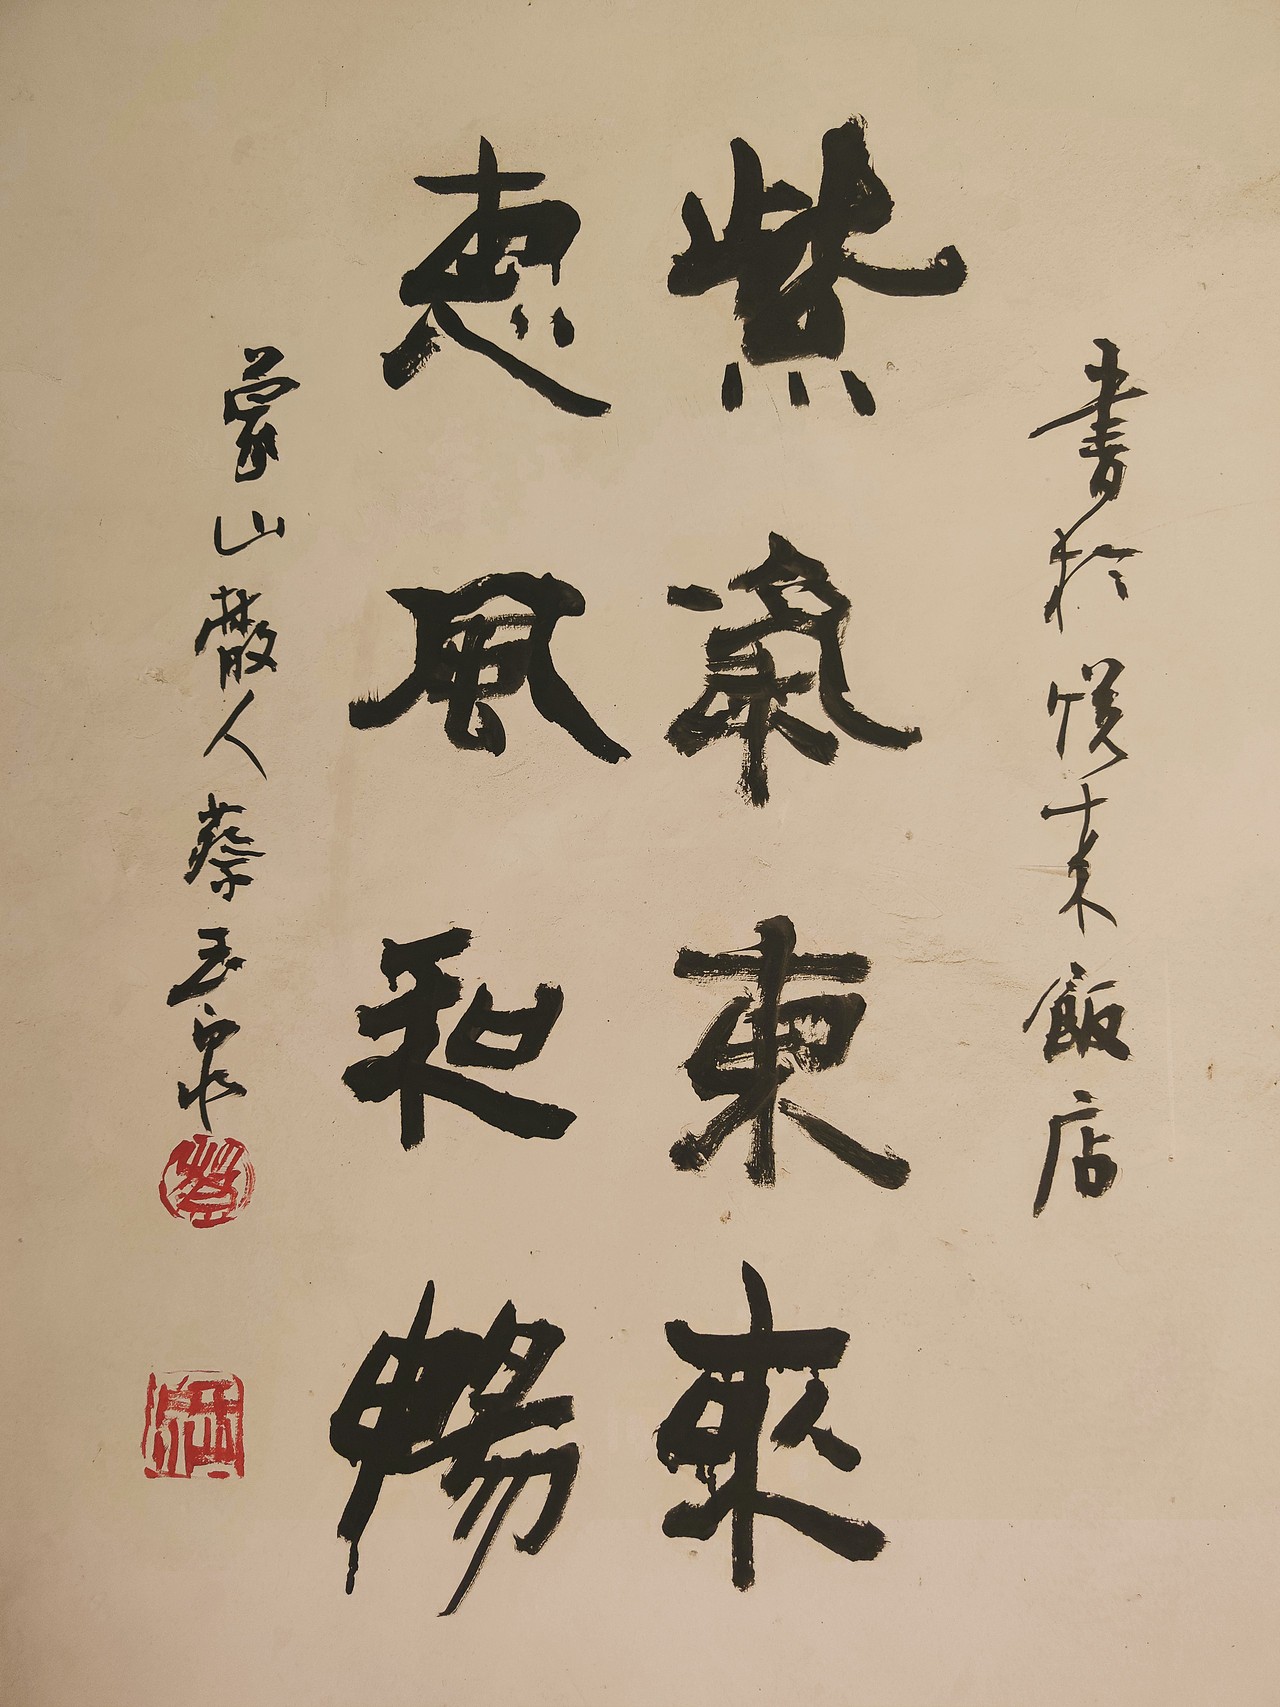 書於悦来飯店
紫氣東來
惠風和暢
蒙山散人蔡玉泉